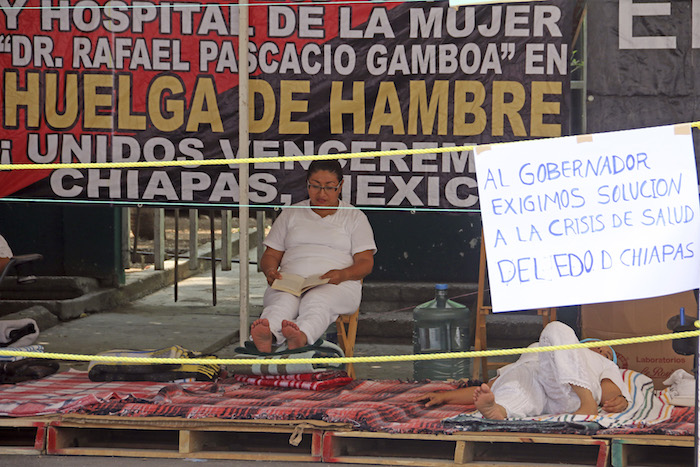 Y HOSPITAL DE LA MUJER
"DR. RAFAEL PASCACIO GAMBOA" EN
HUELGA DE HAMBRE
¡ UNIDOS VENCEREMOS
CHIAPAS, MEXIC
AL GOBERNADOR
EXIGIMOS SOLUCION
A LA CRISIS DE SALUD
DEL EDO D CHIAPAS
Laboratorios